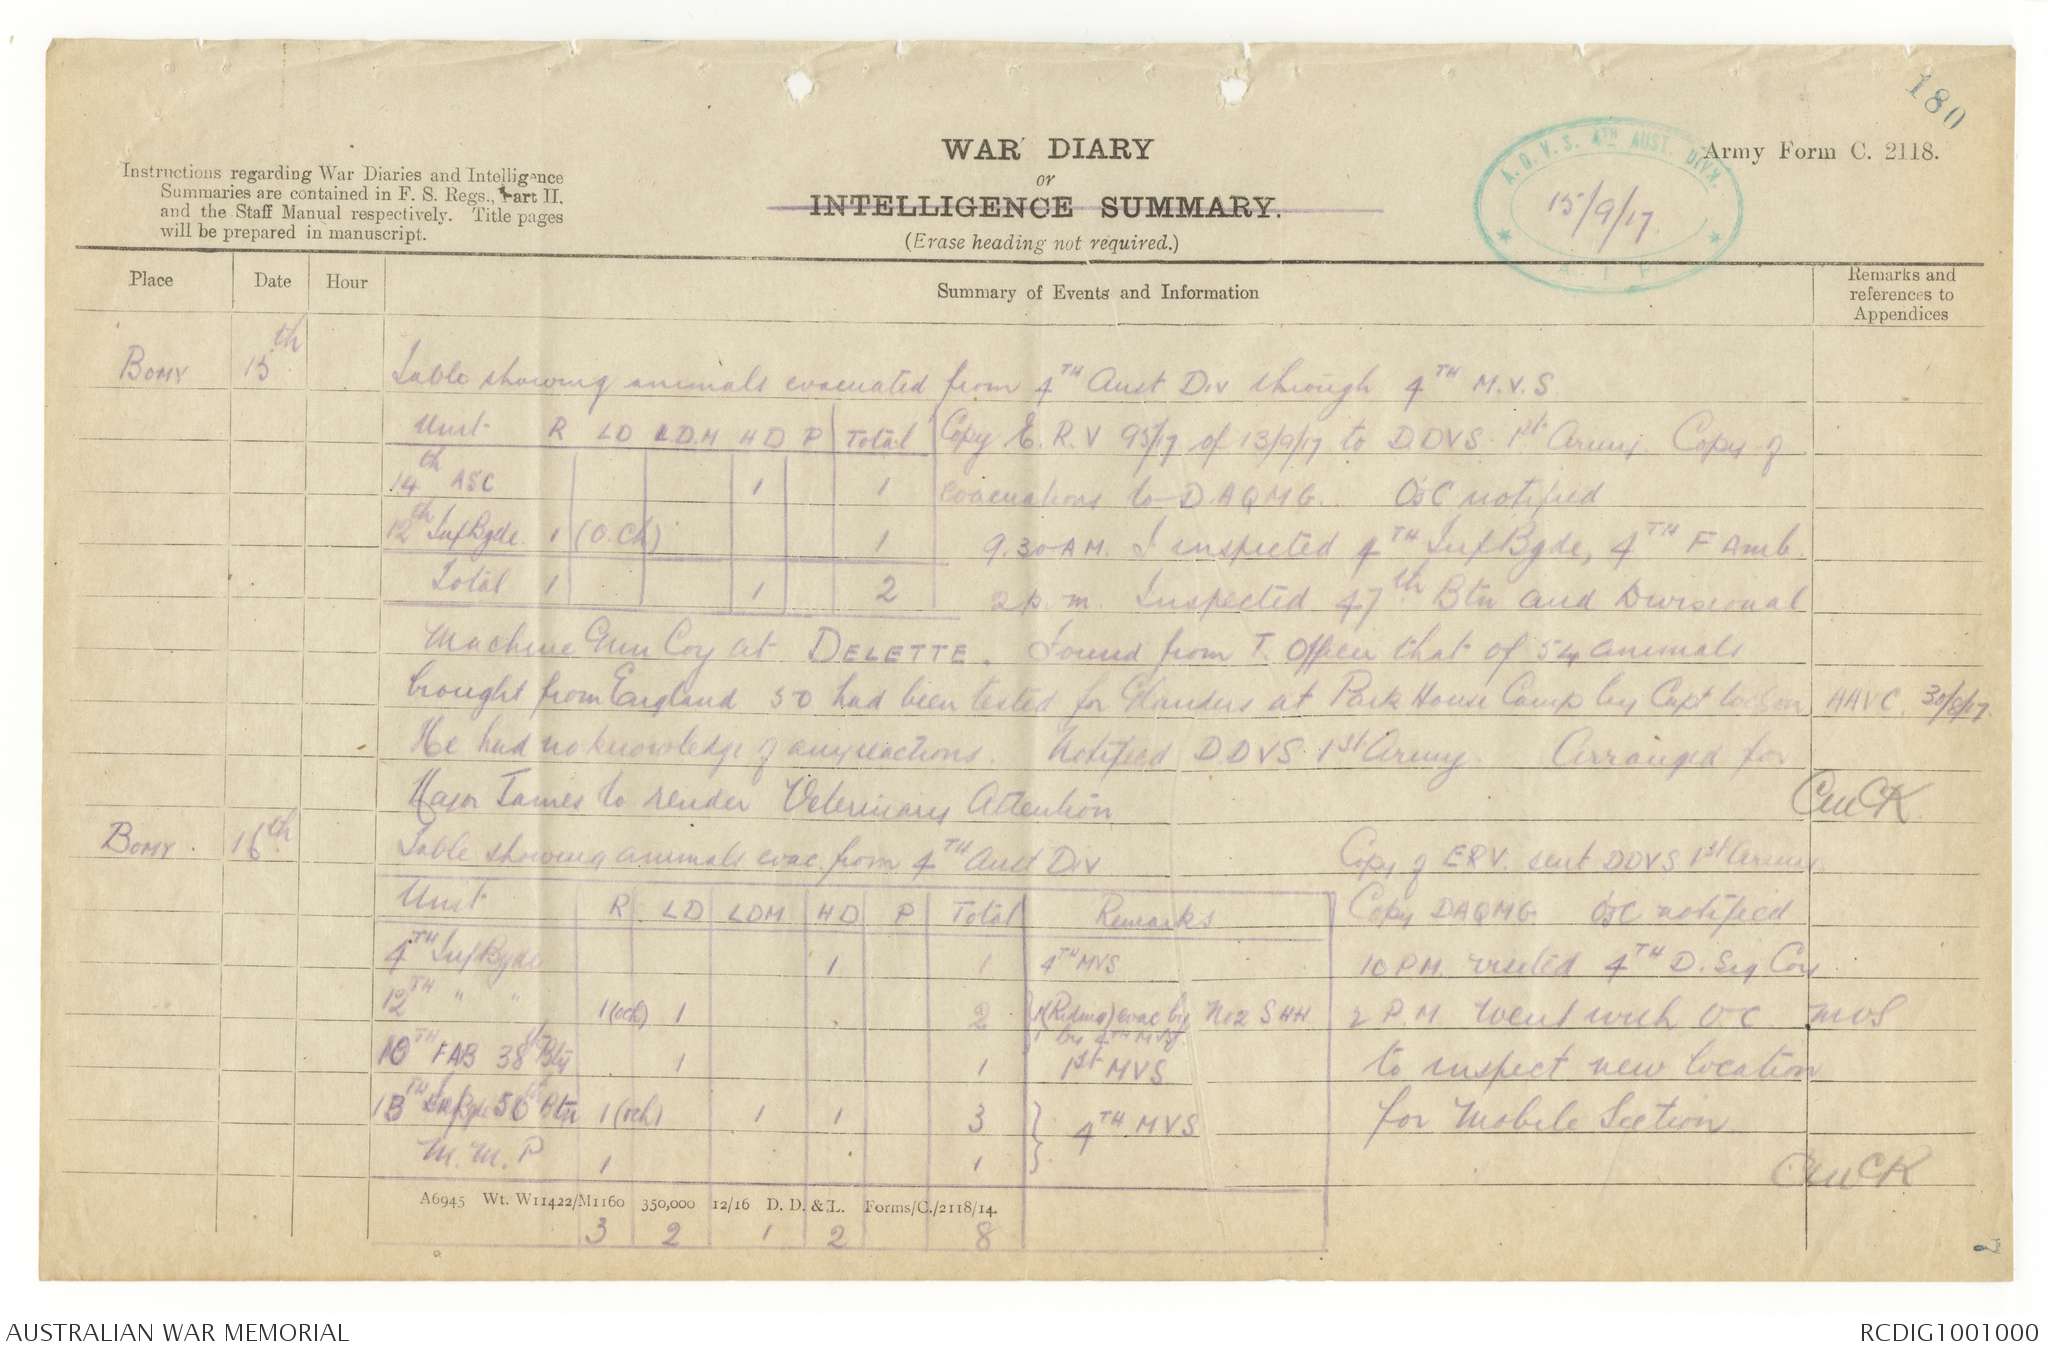 180
WAR DIARY
or
INTELLIGENCE SUMMARY.
(Erase heading not required.)
Army Form C. 2118.
Instructions regarding War Diaries and Intelligence
Summaries are contained in F. S. Regs., Part II.
and the Staff Manual respectively. Title pages
will be prepared in manuscript.
A.D.V.S. 4TH AUST. DIVN.
15/9/17
A.I.F.
Place Date Hour Summary of Events and Information Remarks and references to Appendices
BOMY 15th Table showing animals evacuated from 4TH Aust Div through 4TH M.V.S.
Unit R LD LDM HD P Total
14th ASC 1 1
12th Inf Bgde 1 (O.Ch) 1
Total 1 1 2
Copy E.R.V 95/17 of 13/9/17 to DDVS 1st Army. Copy of
evacuations to D.AQMG. OsC notified
9.30 AM. I inspected 4TH Inf Bgde, 4TH F Amb
2 p.m. Inspected 47th Btn and Divisional
Machine Gun Coy at DELETTE. Found from T. Officer that of 54 animals
brought from England 50 had been tested for Glanders at Park House Camp by Capt AAVC. 30/8/17.
He had no knowledge of any reactions. Notified DDVS 1st Army. Arranged for
Major James to render Veterinary Attention
BOMY. 16th Table showing animals evac. from 4TH Aust Div
Unit R LD LDM HD P Total Remarks
4TH Inf Bgde 1 1 4TH MVS
12TH " " 1 (och) 1 2 1 (Riding) evac by No 2 SHH
1 by 4TH MVS
10TH FAB 38th Bty 1 1 1st MVS
13TH Inf Bgde 50th Btn 1 (och) 1 1 3 4TH MVS
M.M.P 1 1
3 2 1 2 8
Copy of ERV. sent DDVS 1st Army
Copy DAQMG OsC notified
10 P.M. visited 4TH D. Sig Coy
2 P.M Went with OC MVS
to inspect new location
for Mobile Section
A6945 Wt. W11422/M1160 350,000 12/16 D. D. & L. Forms/C./2118/14.
AUSTRALIAN WAR MEMORIAL
RCDIG1001000